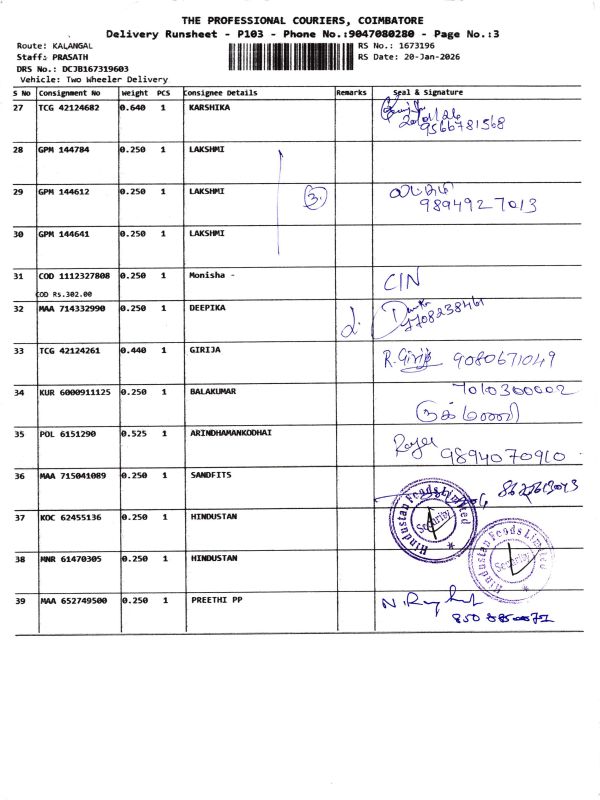 THE PROFESSIONAL COURIERS, COIMBATORE
Delivery Runsheet - P103 - Phone No.:9047080280 - Page No.:3
Route: KALANGAL
Staff: PRASATH
DRS No.: DCJB167319603
Vehicle: Two Wheeler Delivery
RS No.: 1673196
RS Date: 20-Jan-2026
S No Consignment No Weight PCS Consignee Details Remarks Seal & Signature
27 TCG 42124682 0.640 1 KARSHIKA
9566781568
28 GPM 144784 0.250 1 LAKSHMI
29 GPM 144612 0.250 1 LAKSHMI 3.
9894927013
30 GPM 144641 0.250 1 LAKSHMI
31 COD 1112327808 0.250 1 Monisha -
COD Rs.302.00
CIN
32 MAA 714332990 0.250 1 DEEPIKA
7708238461
33 TCG 42124261 0.440 1 GIRIJA R. Girija 9080671049
34 KUR 6000911125 0.250 1 BALAKUMAR 7010300002
35 POL 6151290 0.525 1 ARINDHAMANKODHAI
9894070910
36 MAA 715041089 0.250 1 SANDFITS
37 KOC 62455136 0.250 1 HINDUSTAN
Hindustan Foods Limited
Security
38 MNR 61470305 0.250 1 HINDUSTAN
Hindustan Foods Limited
Security
39 MAA 652749500 0.250 1 PREETHI PP